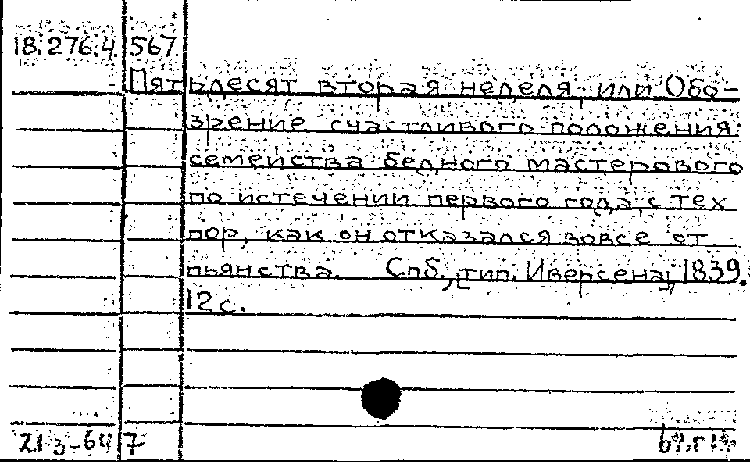 18.276.4.567
Пятьдесят вторая неделя, или Обо-
зрение счастливого положения
семейства бедного мастерового
по истечении первого года, с тех
пор, как он отказался вовсе от
пьянства. Спб., [тип. Иверсена], 1839.
12 с.
213-64 7